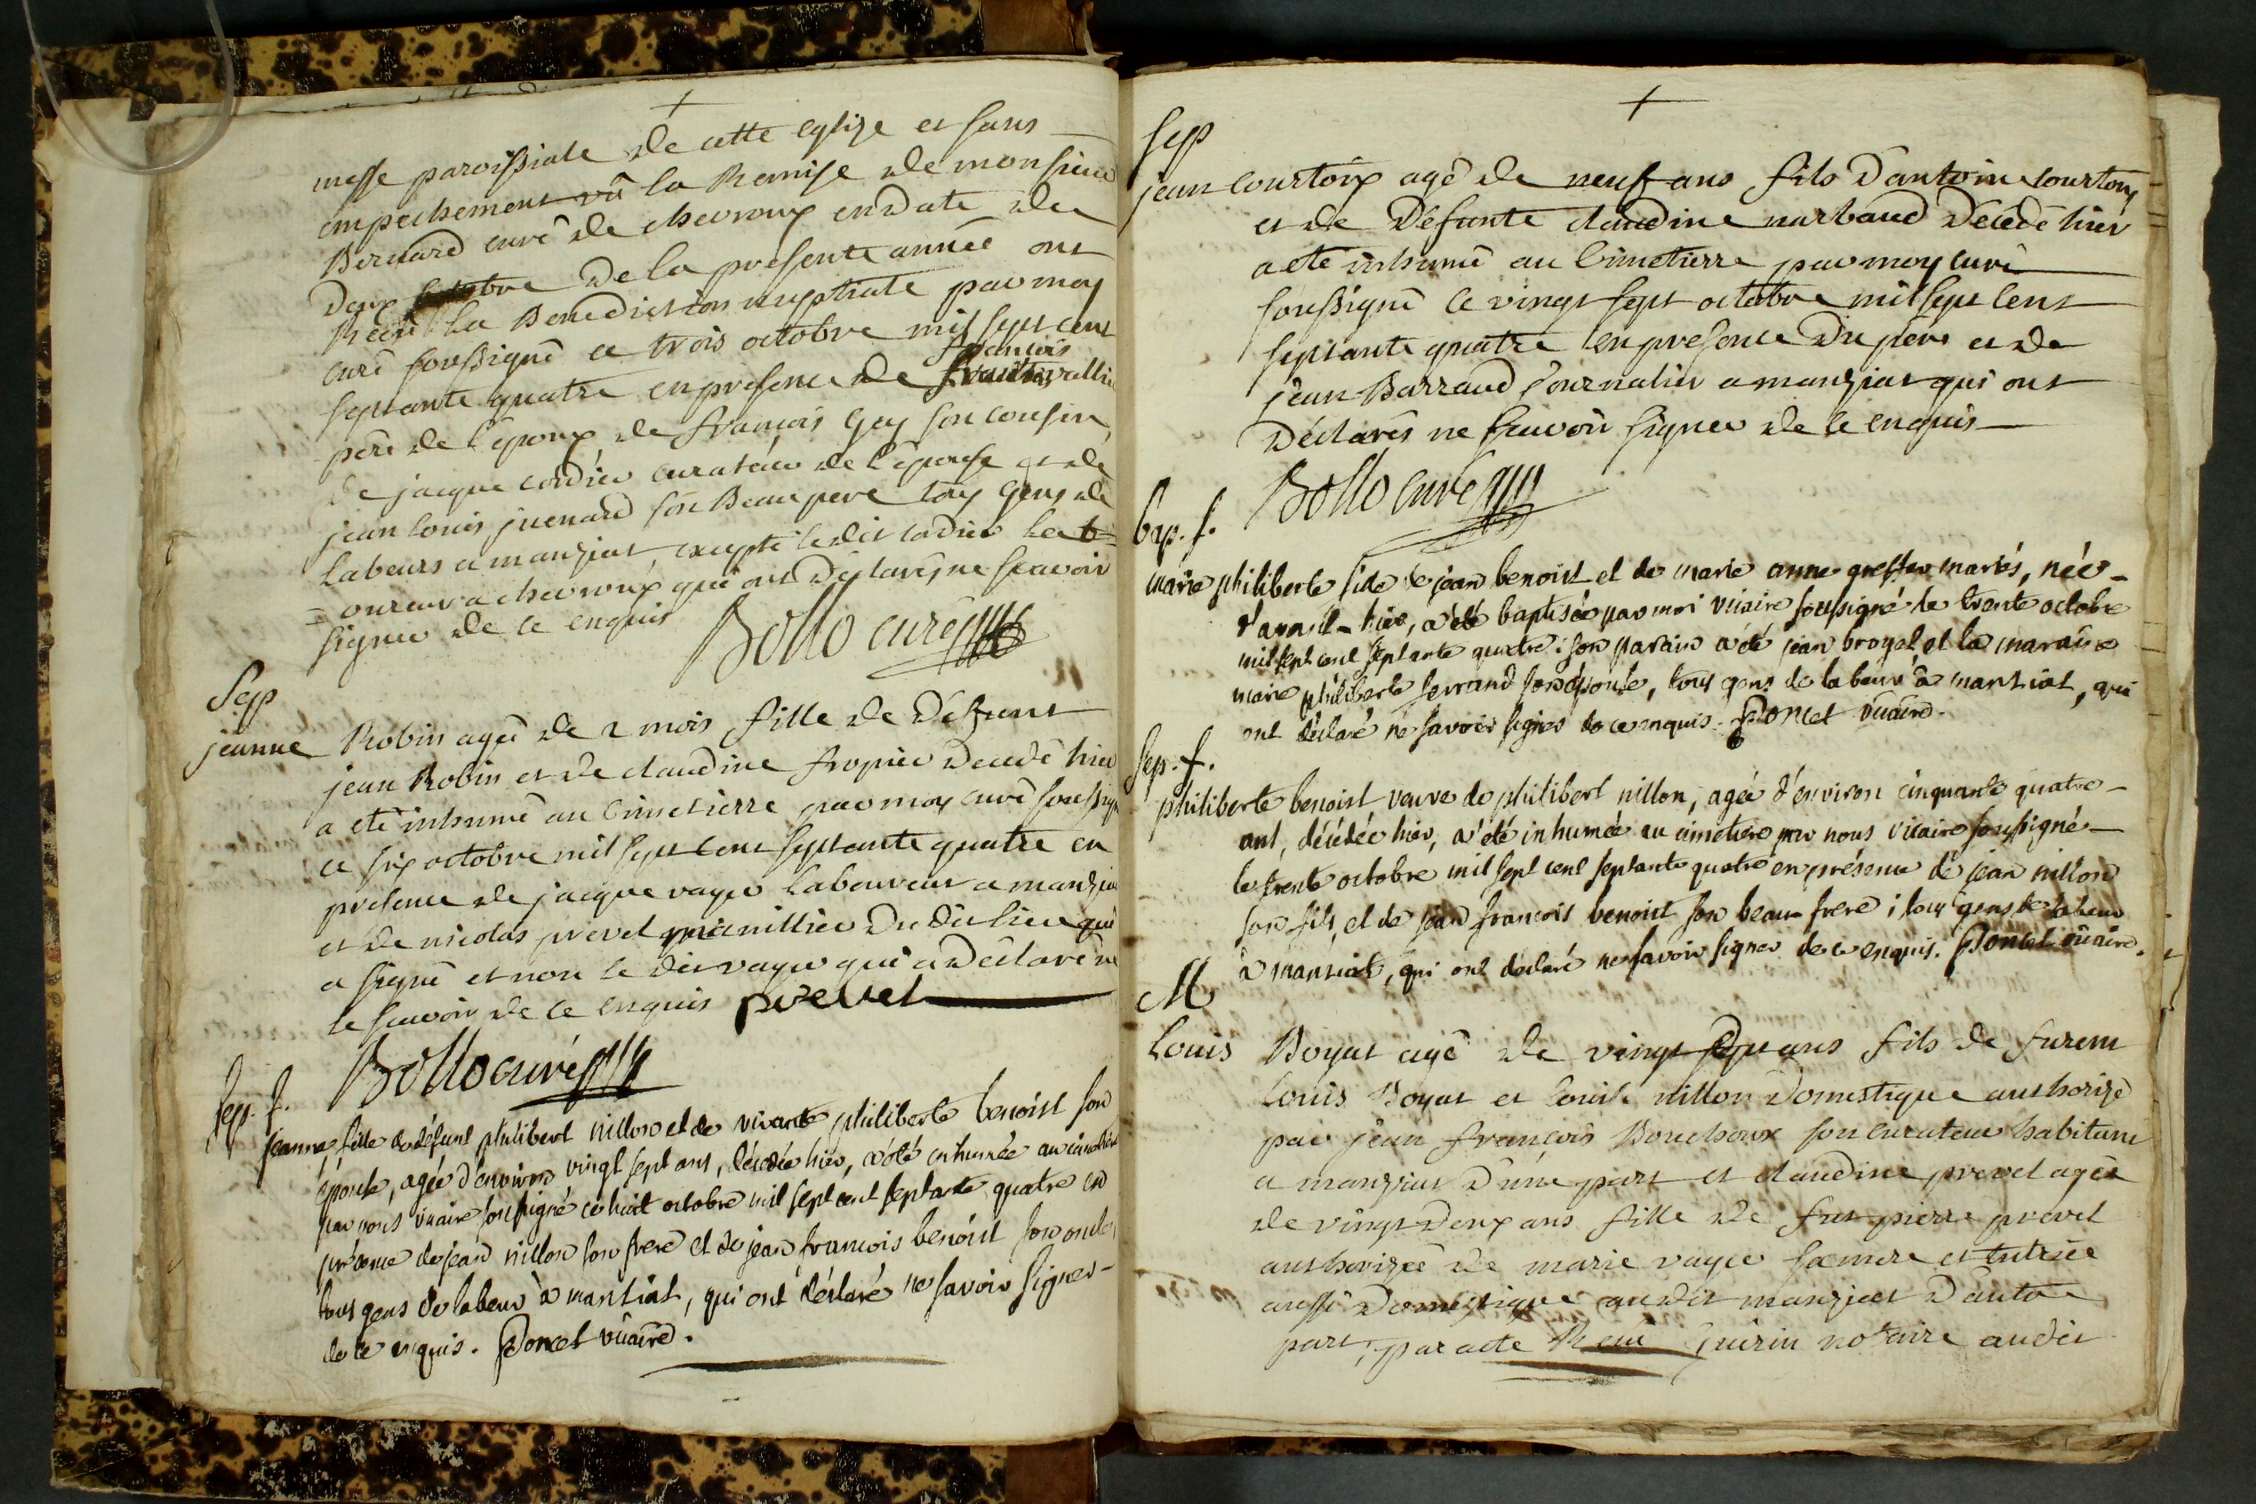 messe paroissiale de cette eglize et sans
empechement vû la Remise de monsieur
Bernard curé de chevroux en date de
deux octobre de la presente année ont
Reçu la Benediction nuptiale par moy
curé soussigné ce trois octobre mil sept cent
françois
septante quatre en presence de
pere de l'epoux de françois Guy son cousin,
de jacque cordier curateur de l'epouse et de
jean louis juenard son Beaupere tous gens de
Labeurs a manziat excepté le dit cordier
a chevroux qui ont déclarés ne scavoir
signer de ce enquis Bollo curé
Sep
jeanne Robin agée de 2 mois fille de defunt
jean Robin et de claudine fropier decedé hier
a eté inhumé au cimetierre par moy curé soussigné
ce six octobre mil sept cent septante quatre en
presence de jacque vayer laboureur a manziat
et de nicolas prevel du dit lieu qui
a signé et non le dit vayer qui a declaré ne
le scavoir de ce enquis prevel
Bollo curé
Sep. f.
jeanne, fille de défunt philibert nillon et de vivante philiberte benoist son
épouse, agée d'environ vingt sept ans, décédée hier, a été inhumée au cimetière
par nous vicaire soussigné ce huit octobre mil sept cent septante quatre en
présence de jean nillon son frere et de jean francois benoist son oncle,
tous gens de labeur à mansiat, qui ont déclaré ne savoir signer
de ce enquis. Poncet vicaire.
Sep
jean courtoix agé de neuf ans fils d'antoine courtoix
et de défunte claudine marbaud décédé hier
a eté inhumé au cimetierre par moy curé
soussigné ce vingt sept octobre mil sept cent
septante quatre en presence du pere et de
jean Barraud journalier a manziat qui ont
déclarés ne scavoir signer de ce enquis
Bollo curé
bap. f.
marie philiberte fille de jean benoist et de marie anne greffer mariés, née
d'avant-hier, a été baptisée par moi vicaire soussigné le trente octobre
mil sept cent septante quatre : son parain a été jean broyel, et la maraine
marie philiberte ferrand son épouse, tous gens de labeur à mansiat, qui
ont déclaré ne savoir signer de ce enquis. Poncet vicaire.
Sep. f.
philiberte benoist veuve de philibert nillon, agée d'environ cinquante quatre
ans, décédée hier, a été inhumée au cimetiere par nous vicaire soussigné
le trente octobre mil sept cent septante quatre en présence de jean nillon
son fils, et de jean francois benoist son beau frere ; tous gens de labeur
à mansiat, qui ont déclaré ne savoir signer de ce enquis. Poncet vicaire.
M
Louis Boyat agé de vingt sept ans fils de furent
Louis Boyat et Louise nillon domestique authorizé
par jean françois Bouchoux son curateur habitant
a manziat d'une part et claudine prevel agée
de vingt deux ans fille de fut pierre prevel
authorizée de marie vayer sa mere et tutrice
aussi domestique audit manziat d'autre
part, par acte Reçu Guirin notaire audit